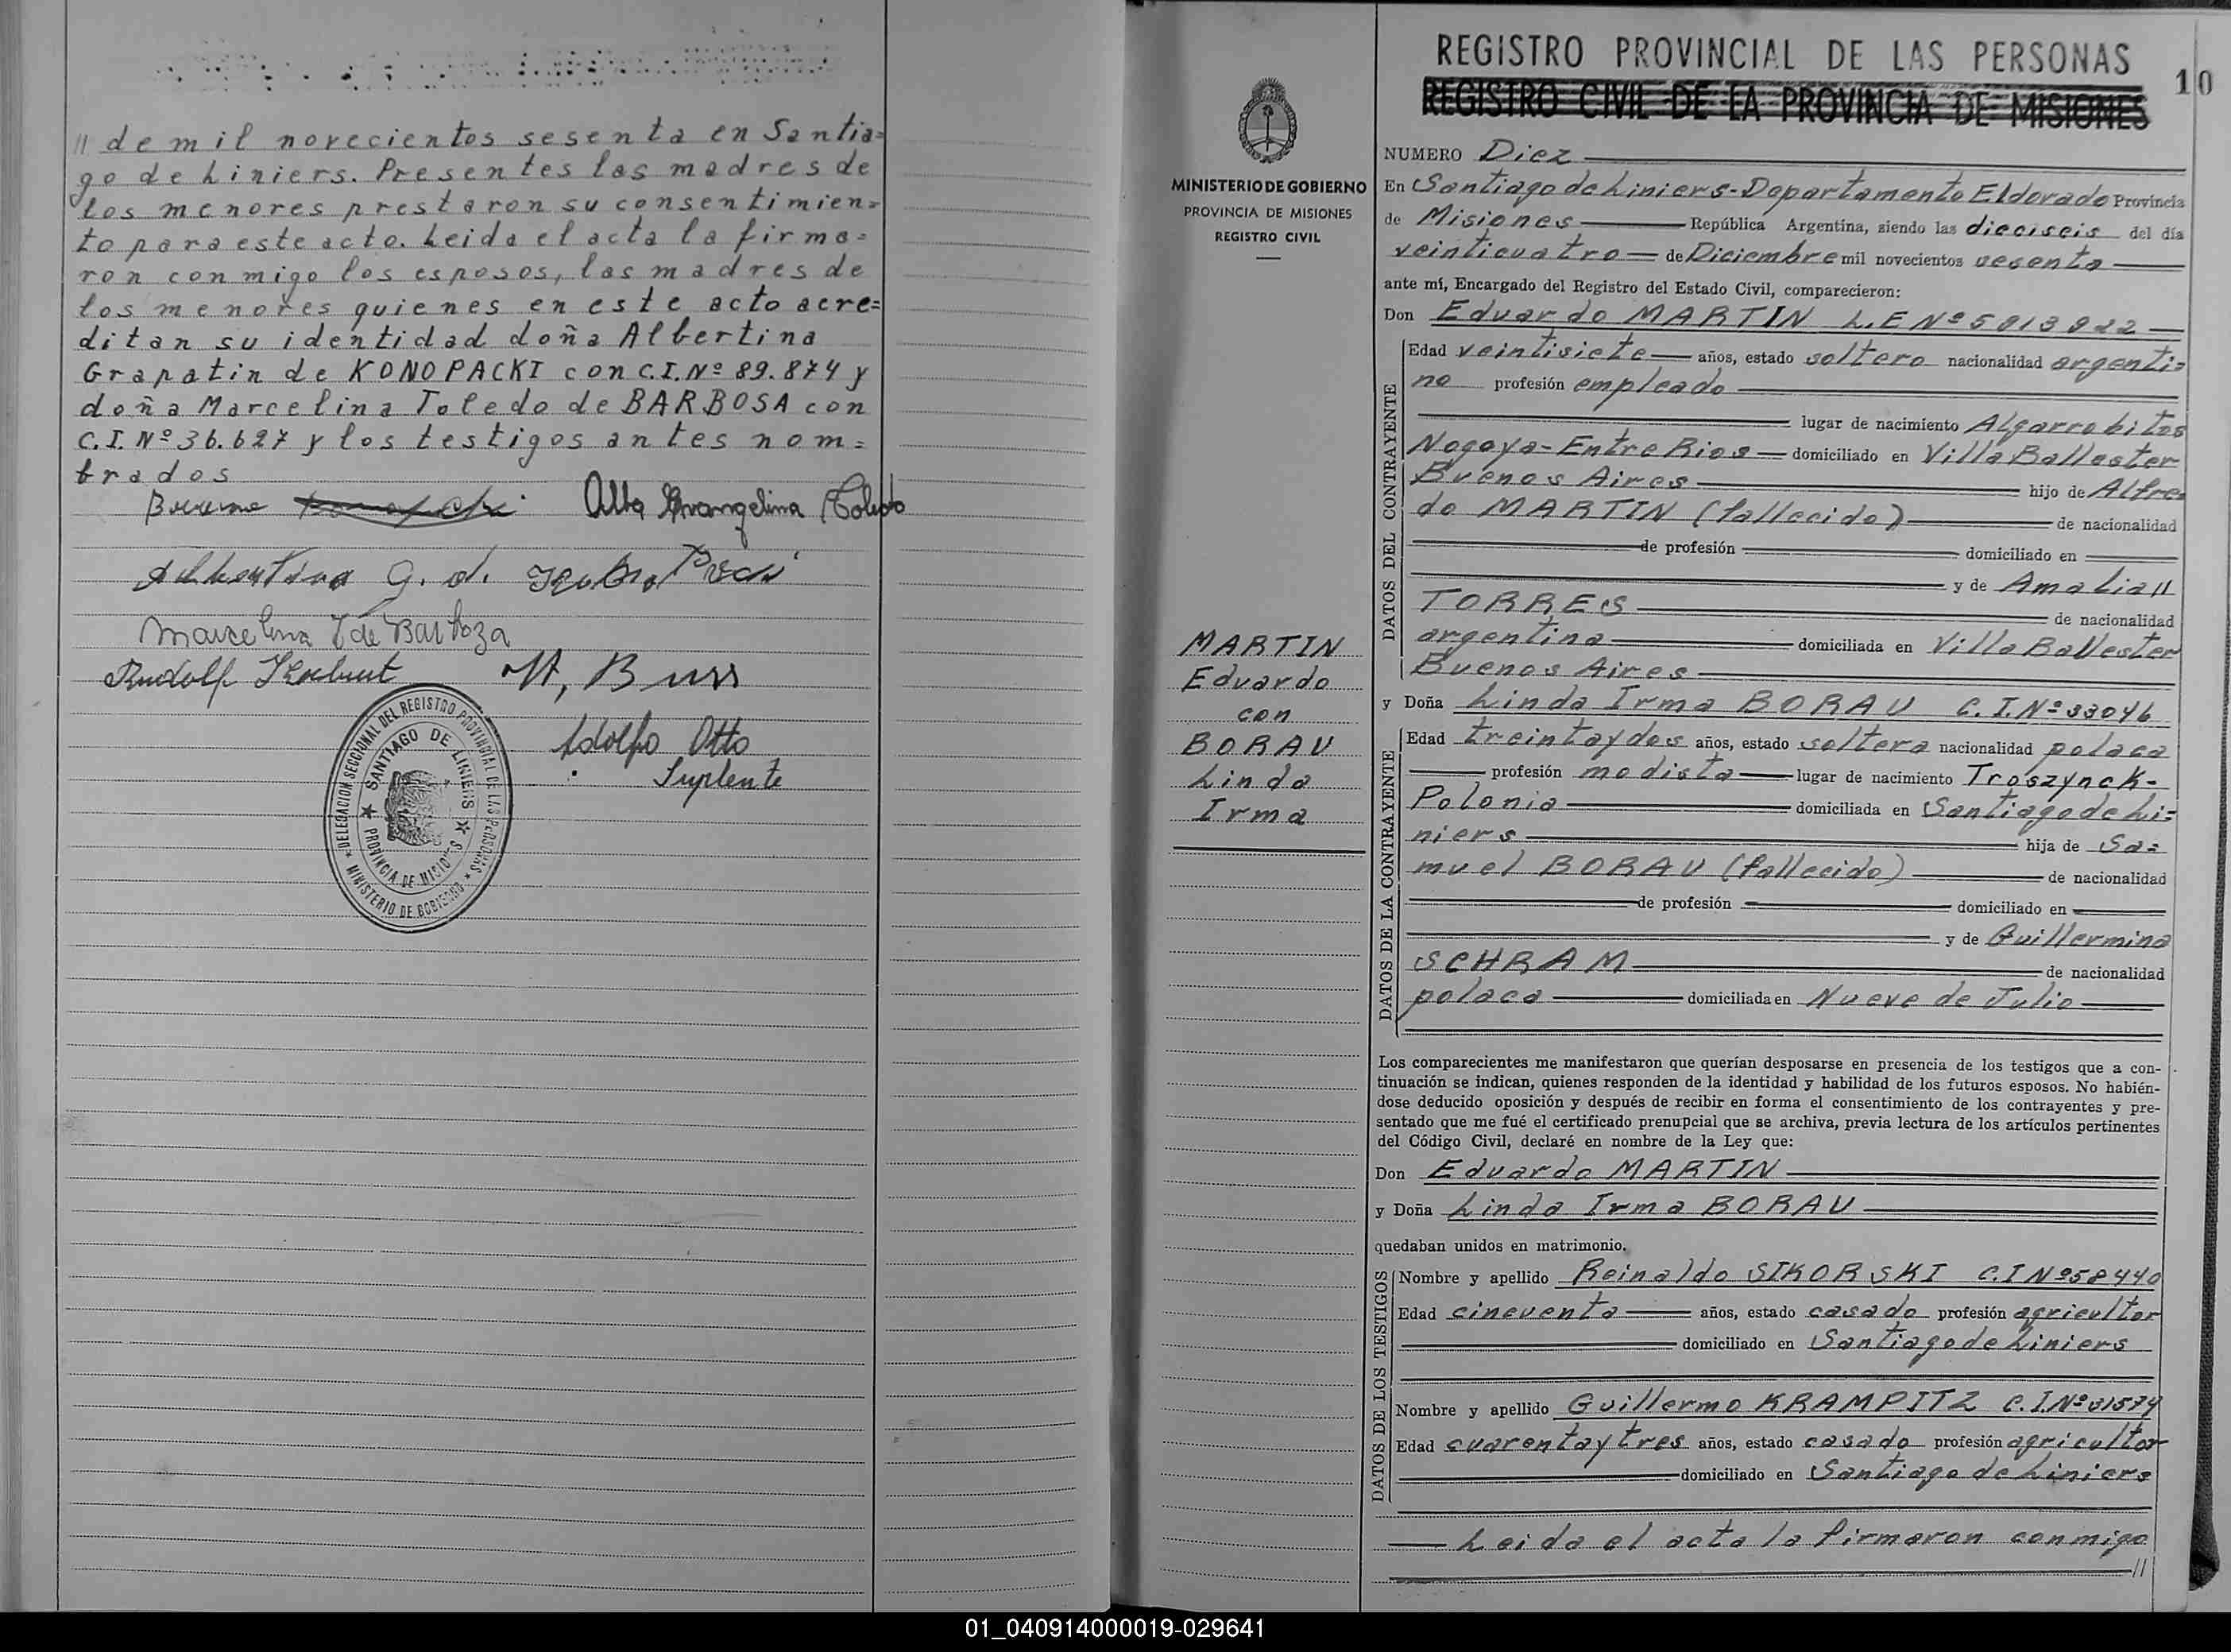 // de mil novecientos sesenta en Santia=
go de Liniers. Presentes las madres de
los menores prestaron su consentimien=
to para este acto. Leida el acta la firma=
ron conmigo los esposos, las madres de
los menores quienes en este acto acre=
ditan su identidad doña Albertina
Grapatin de KONOPACKI con C.I. Nº 89.874 y
doña Marcelina Toledo de BARBOSA con
C.I. Nº 36.627 y los testigos antes nom=
brados
Alba Evangelina Toledo
Albertina G. d.
Marcelina T de Barboza
Rudolf
Adolfo Otto
Suplente
DELEGACION SECCIONAL DEL REGISTRO PROVINCIAL DE LAS PERSONAS
MINISTERIO DE GOBIERNO
SANTIAGO DE LINIERS
PROVINCIA DE MISIONES
REGISTRO PROVINCIAL DE LAS PERSONAS
10
REGISTRO CIVIL DE LA PROVINCIA DE MISIONES
MINISTERIO DE GOBIERNO
PROVINCIA DE MISIONES
REGISTRO CIVIL
MARTIN
Eduardo
con
BORAU
Linda
Irma
NUMERO Diez
En Santiago de Liniers-Departamento Eldorado Provincia
de Misiones República Argentina, siendo las dieciseis del día
veinticuatro de Diciembre mil novecientos sesenta
ante mí, Encargado del Registro del Estado Civil, comparecieron:
Don Eduardo MARTIN L.E Nº 5813822
DATOS DEL CONTRAYENTE
Edad veintisiete años, estado soltero nacionalidad argenti=
no profesión empleado
lugar de nacimiento Algarrobitos
Nogoya-Entre Rios domiciliado en Villa Ballester
Buenos Aires hijo de Alfre
do MARTIN (fallecido) de nacionalidad
de profesión domiciliado en
y de Amalia //
TORRES de nacionalidad
argentina domiciliada en Villa Ballester
Buenos Aires
y Doña Linda Irma BORAU C.I. Nº 33046
DATOS DE LA CONTRAYENTE
Edad treinta y dos años, estado soltera nacionalidad polaca
profesión modista lugar de nacimiento Troszynck-
Polonia domiciliada en Santiago de Li=
niers hija de Sa=
muel BORAU (fallecido) de nacionalidad
de profesión domiciliado en
y de Guillermina
SCHRAM de nacionalidad
polaca domiciliada en Nueve de Julio
Los comparecientes me manifestaron que querían desposarse en presencia de los testigos que a con-
tinuación se indican, quienes responden de la identidad y habilidad de los futuros esposos. No habién-
dose deducido oposición y después de recibir en forma el consentimiento de los contrayentes y pre-
sentado que me fué el certificado prenupcial que se archiva, previa lectura de los artículos pertinentes
del Código Civil, declaré en nombre de la Ley que:
Don Eduardo MARTIN
y Doña Linda Irma BORAU
quedaban unidos en matrimonio.
DATOS DE LOS TESTIGOS
Nombre y apellido Reinaldo SIKORSKI C.I Nº 58440
Edad cincuenta años, estado casado profesión agricultor
domiciliado en Santiago de Liniers
Nombre y apellido Guillermo KRAMPITZ C.I. Nº 31574
Edad cuarenta y tres años, estado casado profesión agricultor
domiciliado en Santiago de Liniers
Leida el acta la firmaron conmigo
//
01_040914000019-029641